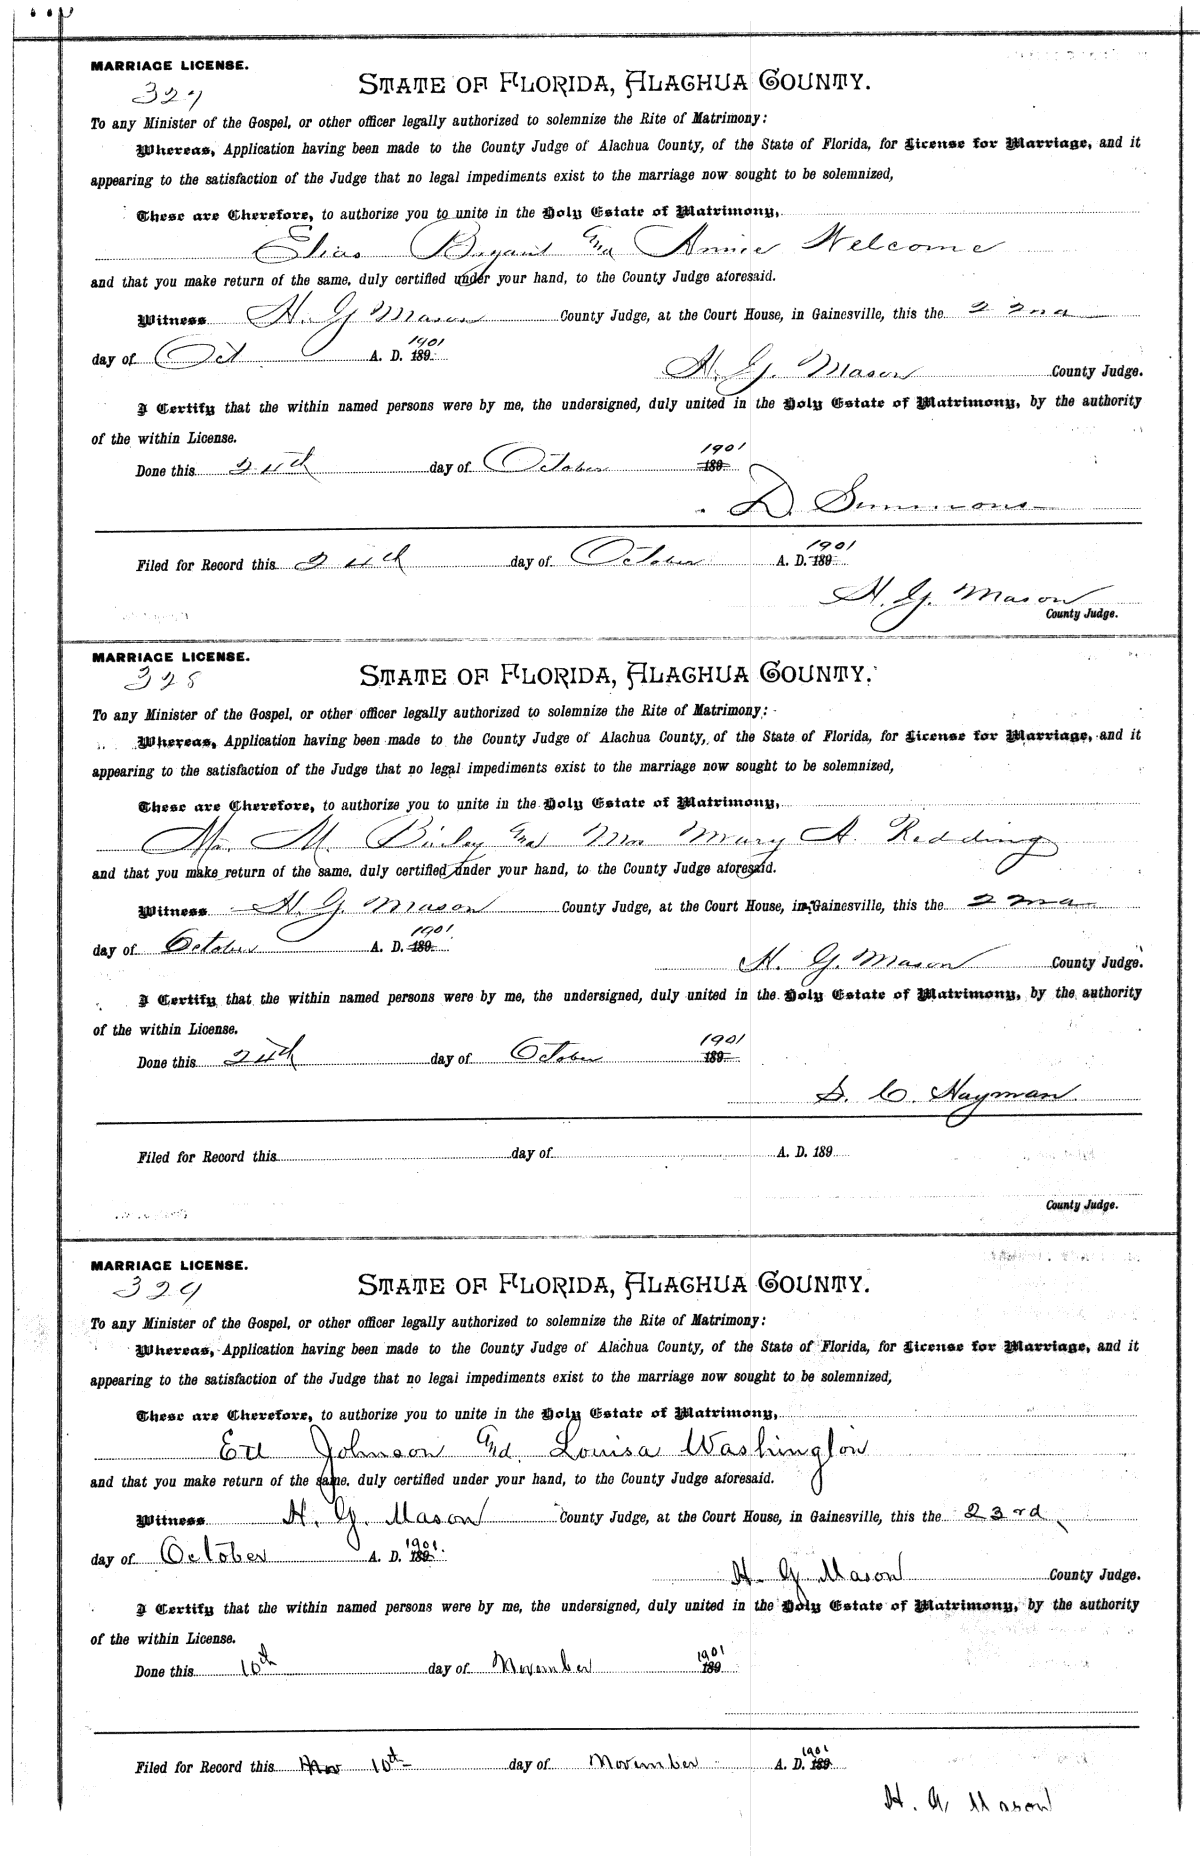 MARRIAGE LICENSE.
327
STATE OF FLORIDA, ALACHUA COUNTY.
To any Minister of the Gospel, or other officer legally authorized to solemnize the Rite of Matrimony:
Whereas, Application having been made to the County Judge of Alachua County, of the State of Florida, for License for Marriage, and it
appearing to the satisfaction of the Judge that no legal impediments exist to the marriage now sought to be solemnized,
These are Therefore, to authorize you to unite in the Holy Estate of Matrimony,
Elias Bryant And Annie Welcome
and that you make return of the same, duly certified under your hand, to the County Judge aforesaid.
Witness H. G Mason County Judge, at the Court House, in Gainesville, this the 22nd
day of Oct A. D. 189 1901
H. G. Mason County Judge.
I Certify that the within named persons were by me, the undersigned, duly united in the Holy Estate of Matrimony, by the authority
of the within License.
Done this 24th day of October 189 1901
D. Simmons
Filed for Record this 24th day of October A. D. 189 1901
H. G. Mason
County Judge.
MARRIAGE LICENSE.
328
STATE OF FLORIDA, ALACHUA COUNTY.
To any Minister of the Gospel, or other officer legally authorized to solemnize the Rite of Matrimony:
Whereas, Application having been made to the County Judge of Alachua County, of the State of Florida, for License for Marriage, and it
appearing to the satisfaction of the Judge that no legal impediments exist to the marriage now sought to be solemnized,
These are Therefore, to authorize you to unite in the Holy Estate of Matrimony,
Mr. M. And Mrs Mary A. Redding
and that you make return of the same, duly certified under your hand, to the County Judge aforesaid.
Witness H. G. Mason County Judge, at the Court House, in Gainesville, this the 22nd
day of October A. D. 189 1901
H. G. Mason County Judge.
I Certify that the within named persons were by me, the undersigned, duly united in the Holy Estate of Matrimony, by the authority
of the within License.
Done this 24th day of October 189 1901
S. C. Hayman
Filed for Record this day of A. D. 189
County Judge.
MARRIAGE LICENSE.
329
STATE OF FLORIDA, ALACHUA COUNTY.
To any Minister of the Gospel, or other officer legally authorized to solemnize the Rite of Matrimony:
Whereas, Application having been made to the County Judge of Alachua County, of the State of Florida, for License for Marriage, and it
appearing to the satisfaction of the Judge that no legal impediments exist to the marriage now sought to be solemnized,
These are Therefore, to authorize you to unite in the Holy Estate of Matrimony,
Ed Johnson And Louisa Washington
and that you make return of the same, duly certified under your hand, to the County Judge aforesaid.
Witness H. G. Mason County Judge, at the Court House, in Gainesville, this the 23rd
day of October A. D. 189 1901
H. G Mason County Judge.
I Certify that the within named persons were by me, the undersigned, duly united in the Holy Estate of Matrimony, by the authority
of the within License.
Done this 10th day of November 189 1901
Filed for Record this Nov 10th day of November A. D. 189 1901
H. G Mason